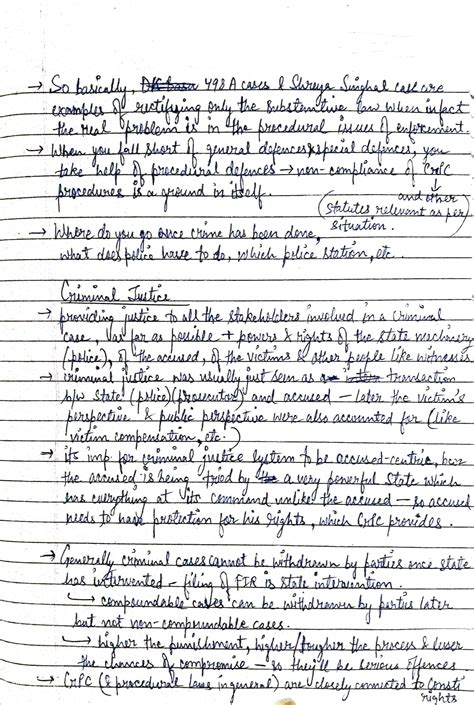 → So basically, 498A cases & Shreya Singhal case are
examples of rectifying only the substantive law when infact
the real problem is in the procedural issues of enforcement
→ When you fall short of general defences & special defences, you
take help of procedural defences → non-compliance of CrPC
procedures is a ground in itself.
↓
and other
(statutes relevant as per
situation.)
→ Where do you go once crime has been done,
what does police have to do, which police station, etc.
Criminal Justice
→ providing justice to all the stakeholders involved in a criminal
case, as far as possible + powers & rights of the state machinery
(police), of the accused, of the victims & other people like witnesses
→ criminal justice was usually just seen as a transaction
b/w state (police) (prosecutor) and accused – later the victim's
perspective & public perspective were also accounted for (like
victim compensation, etc.)
→ its imp for criminal justice system to be accused-centric, bcz
the accused is being tried by a very powerful state which
has everything at its command unlike the accused – so accused
needs to have protection for his rights, which CrPC provides.
→ Generally criminal cases cannot be withdrawn by parties once state
has intervented – filing of FIR is state intervention.
↳ compoundable cases can be withdrawn by parties later
but not non-compoundable cases.
↳ higher the punishment, higher/tougher the process & lesser
the chances of compromise – so they'll be serious offences
→ CrPC (& procedural laws in general) are closely connected to Consti
rights